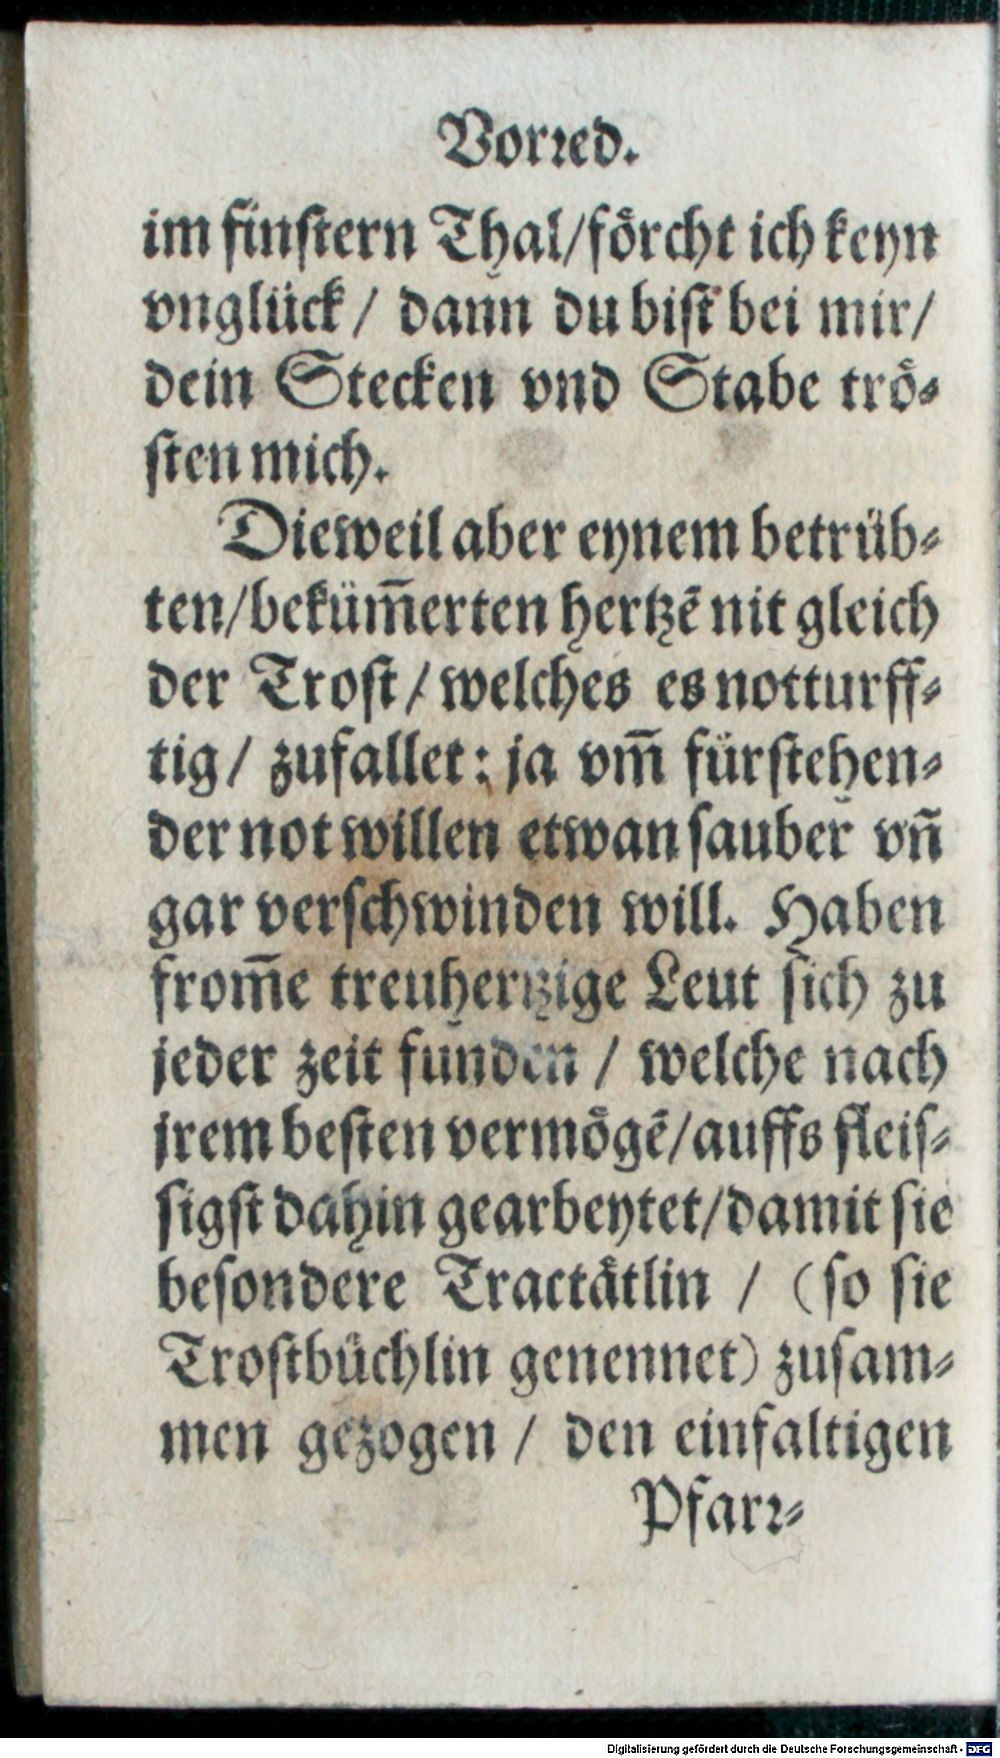 Vorꝛed.
im finſtern Thal/foͤrcht ich keyn
vngluͤck / dann du biſt bei mir/
dein Stecken vnd Stabe troͤ⸗
ſten mich.
Dieweil aber eynem betruͤb⸗
ten/bekuͤm̃erten hertzẽ nit gleich
der Troſt / welches es notturff⸗
tig / zufallet: ja vm̃ fuͤrſtehen⸗
der not willen etwan ſauber vñ
gar verſchwinden will. Haben
from̃e treuhertzige Leut ſich zu
jeder zeit funden / welche nach
jrem beſten vermoͤgẽ/auffs fleiſ⸗
ſigſt dahin gearbeytet/damit ſie
beſondere Tractaͤtlin / (ſo ſie
Troſtbuͤchlin genennet) zuſam⸗
men gezogen / den einfaltigen
Pfarꝛ⸗
Digitalisierung gefördert durch die Deutsche Forschungsgemeinschaft - DFG